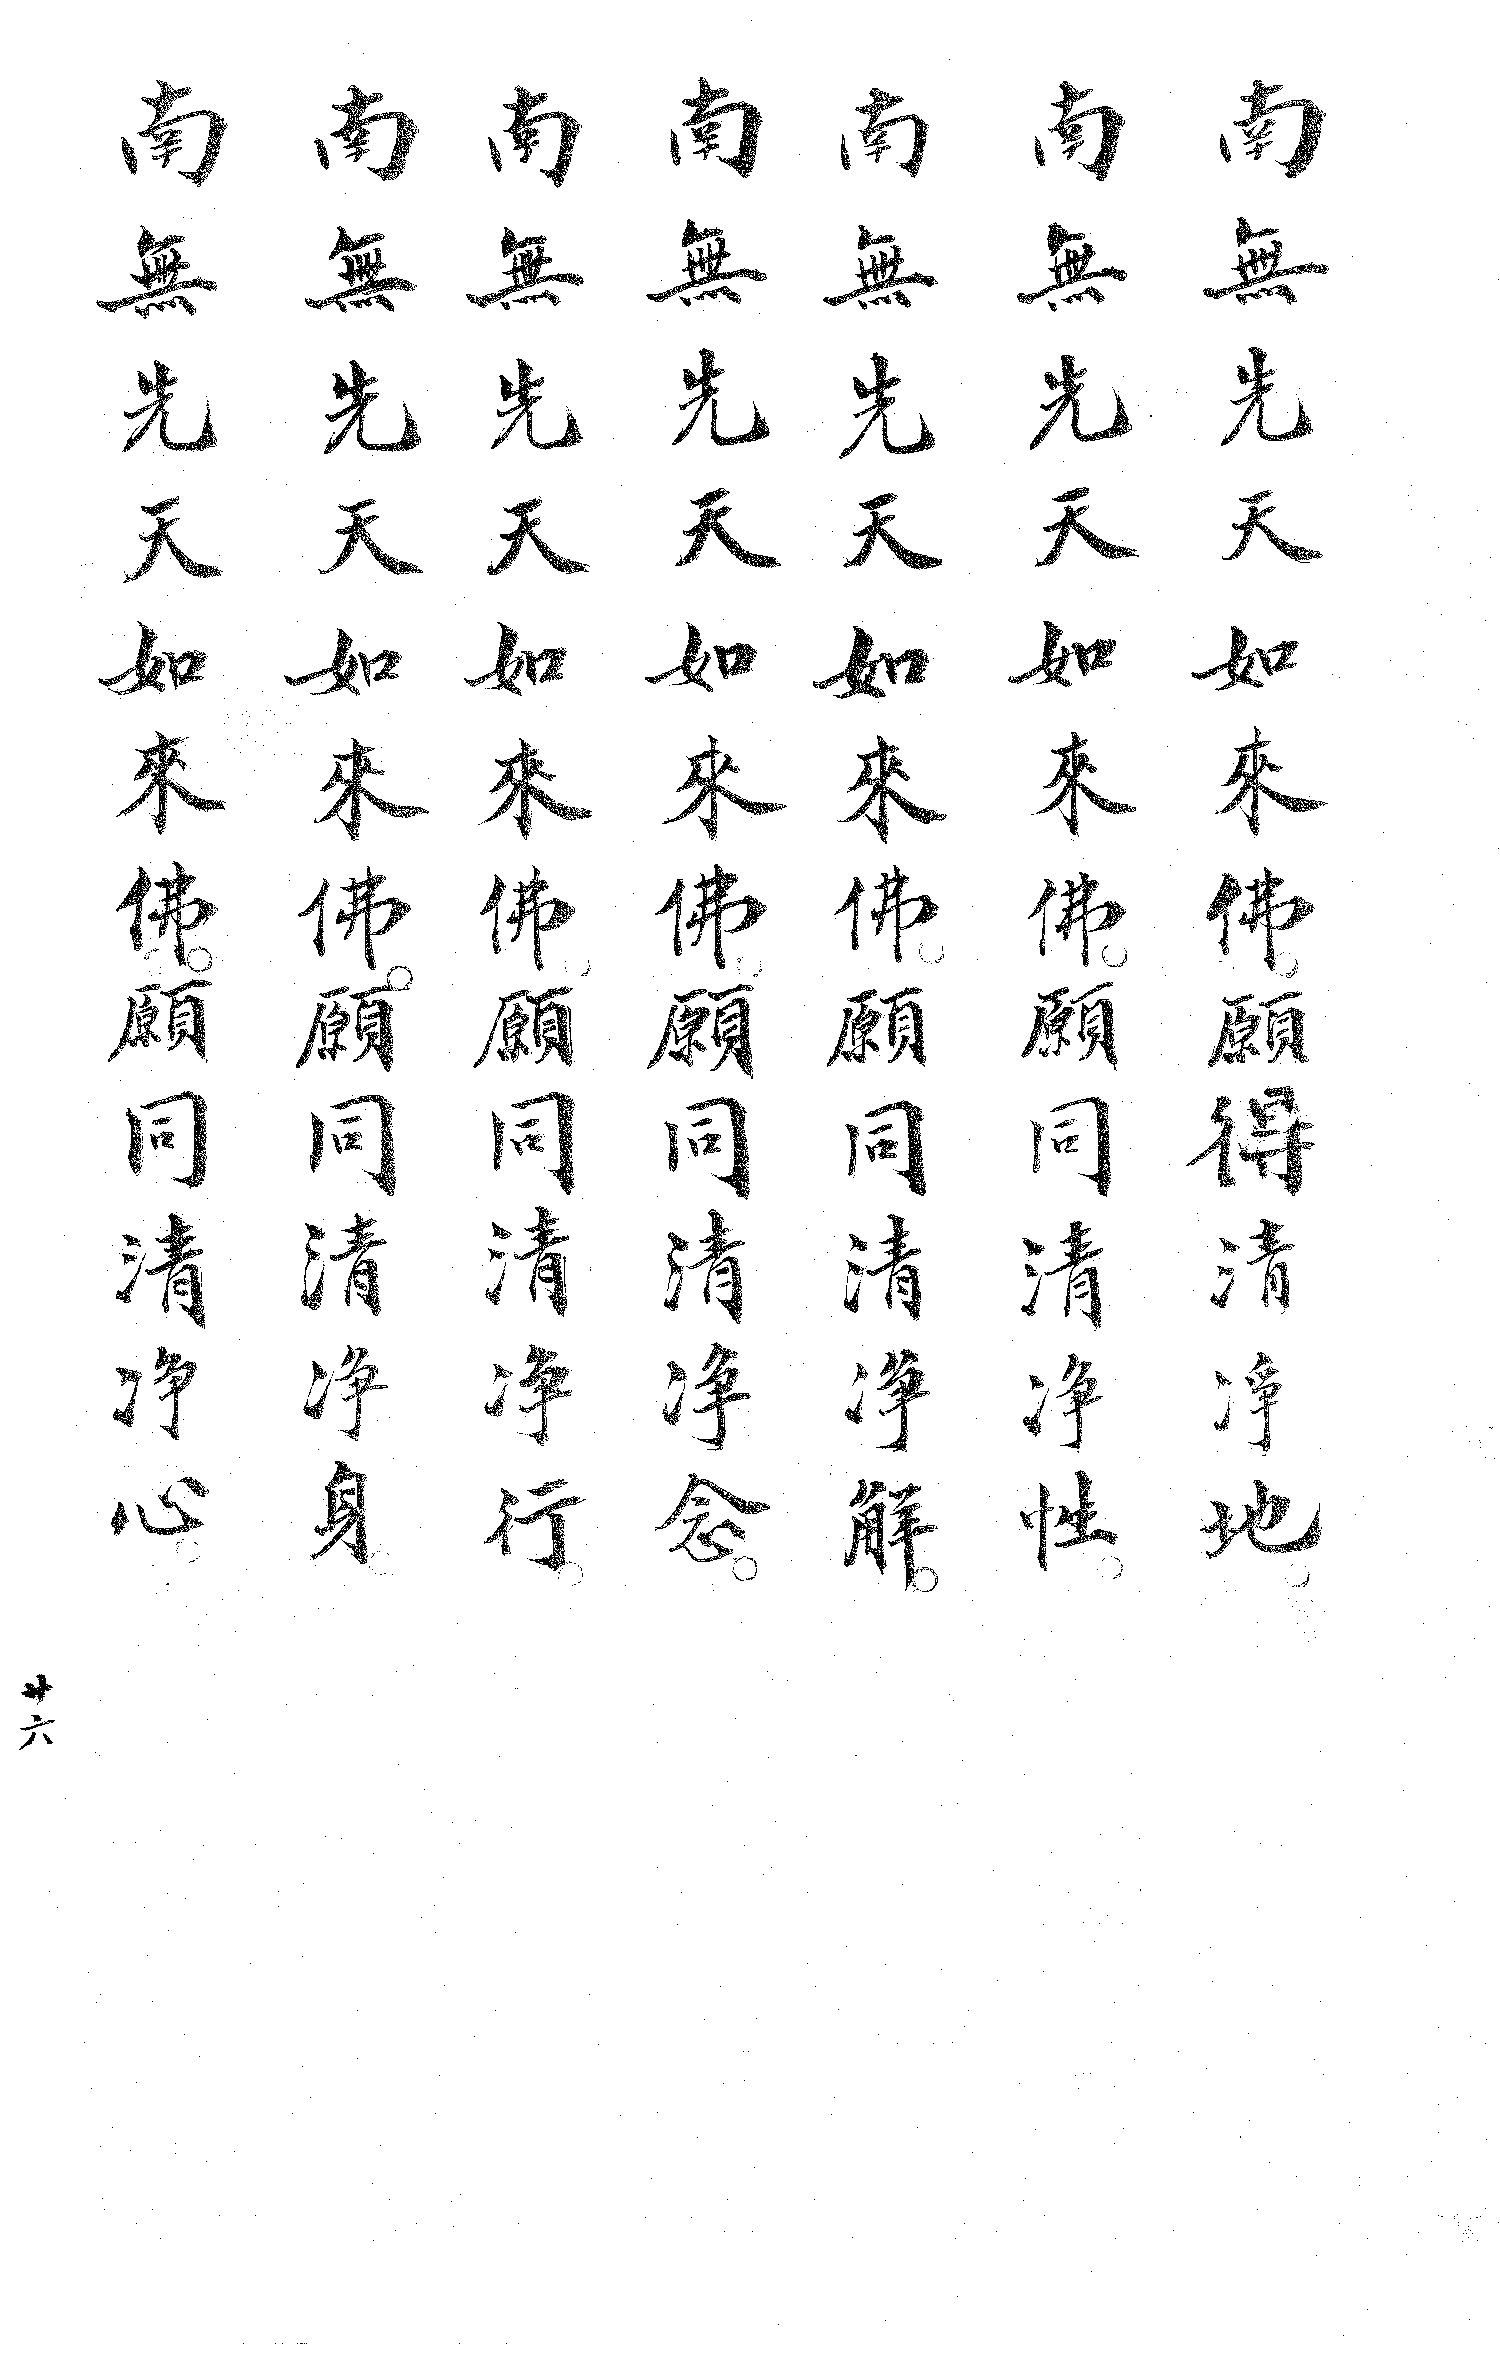 南無先天如來佛。願得清淨地。
南無先天如來佛。願同清淨性。
南無先天如來佛。願同清淨解。
南無先天如來佛。願同清淨念。
南無先天如來佛。願同清淨行。
南無先天如來佛。願同清淨身。
南無先天如來佛。願同清淨心。
廿六